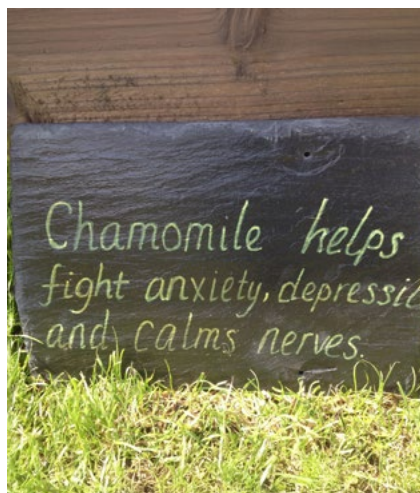 Chamomile helps
fight anxiety, depressi
and calms nerves.